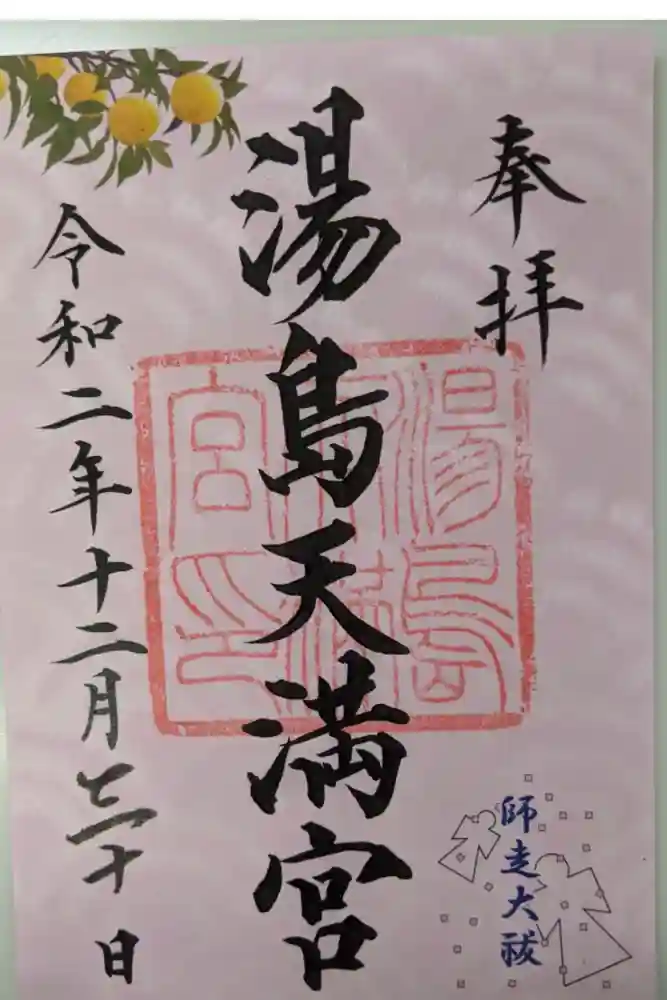 奉拝
湯島天満宮
湯島天満宮印
令和二年十二月三十日
師走大祓